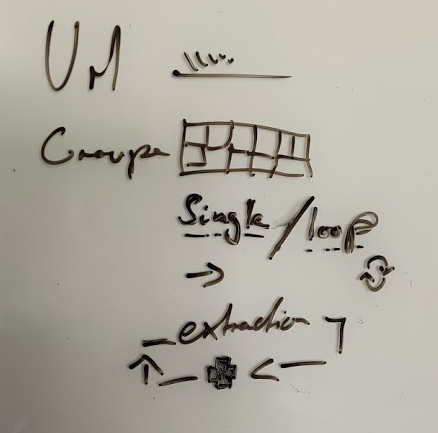 UM
Groupe
Single/loop
extraction